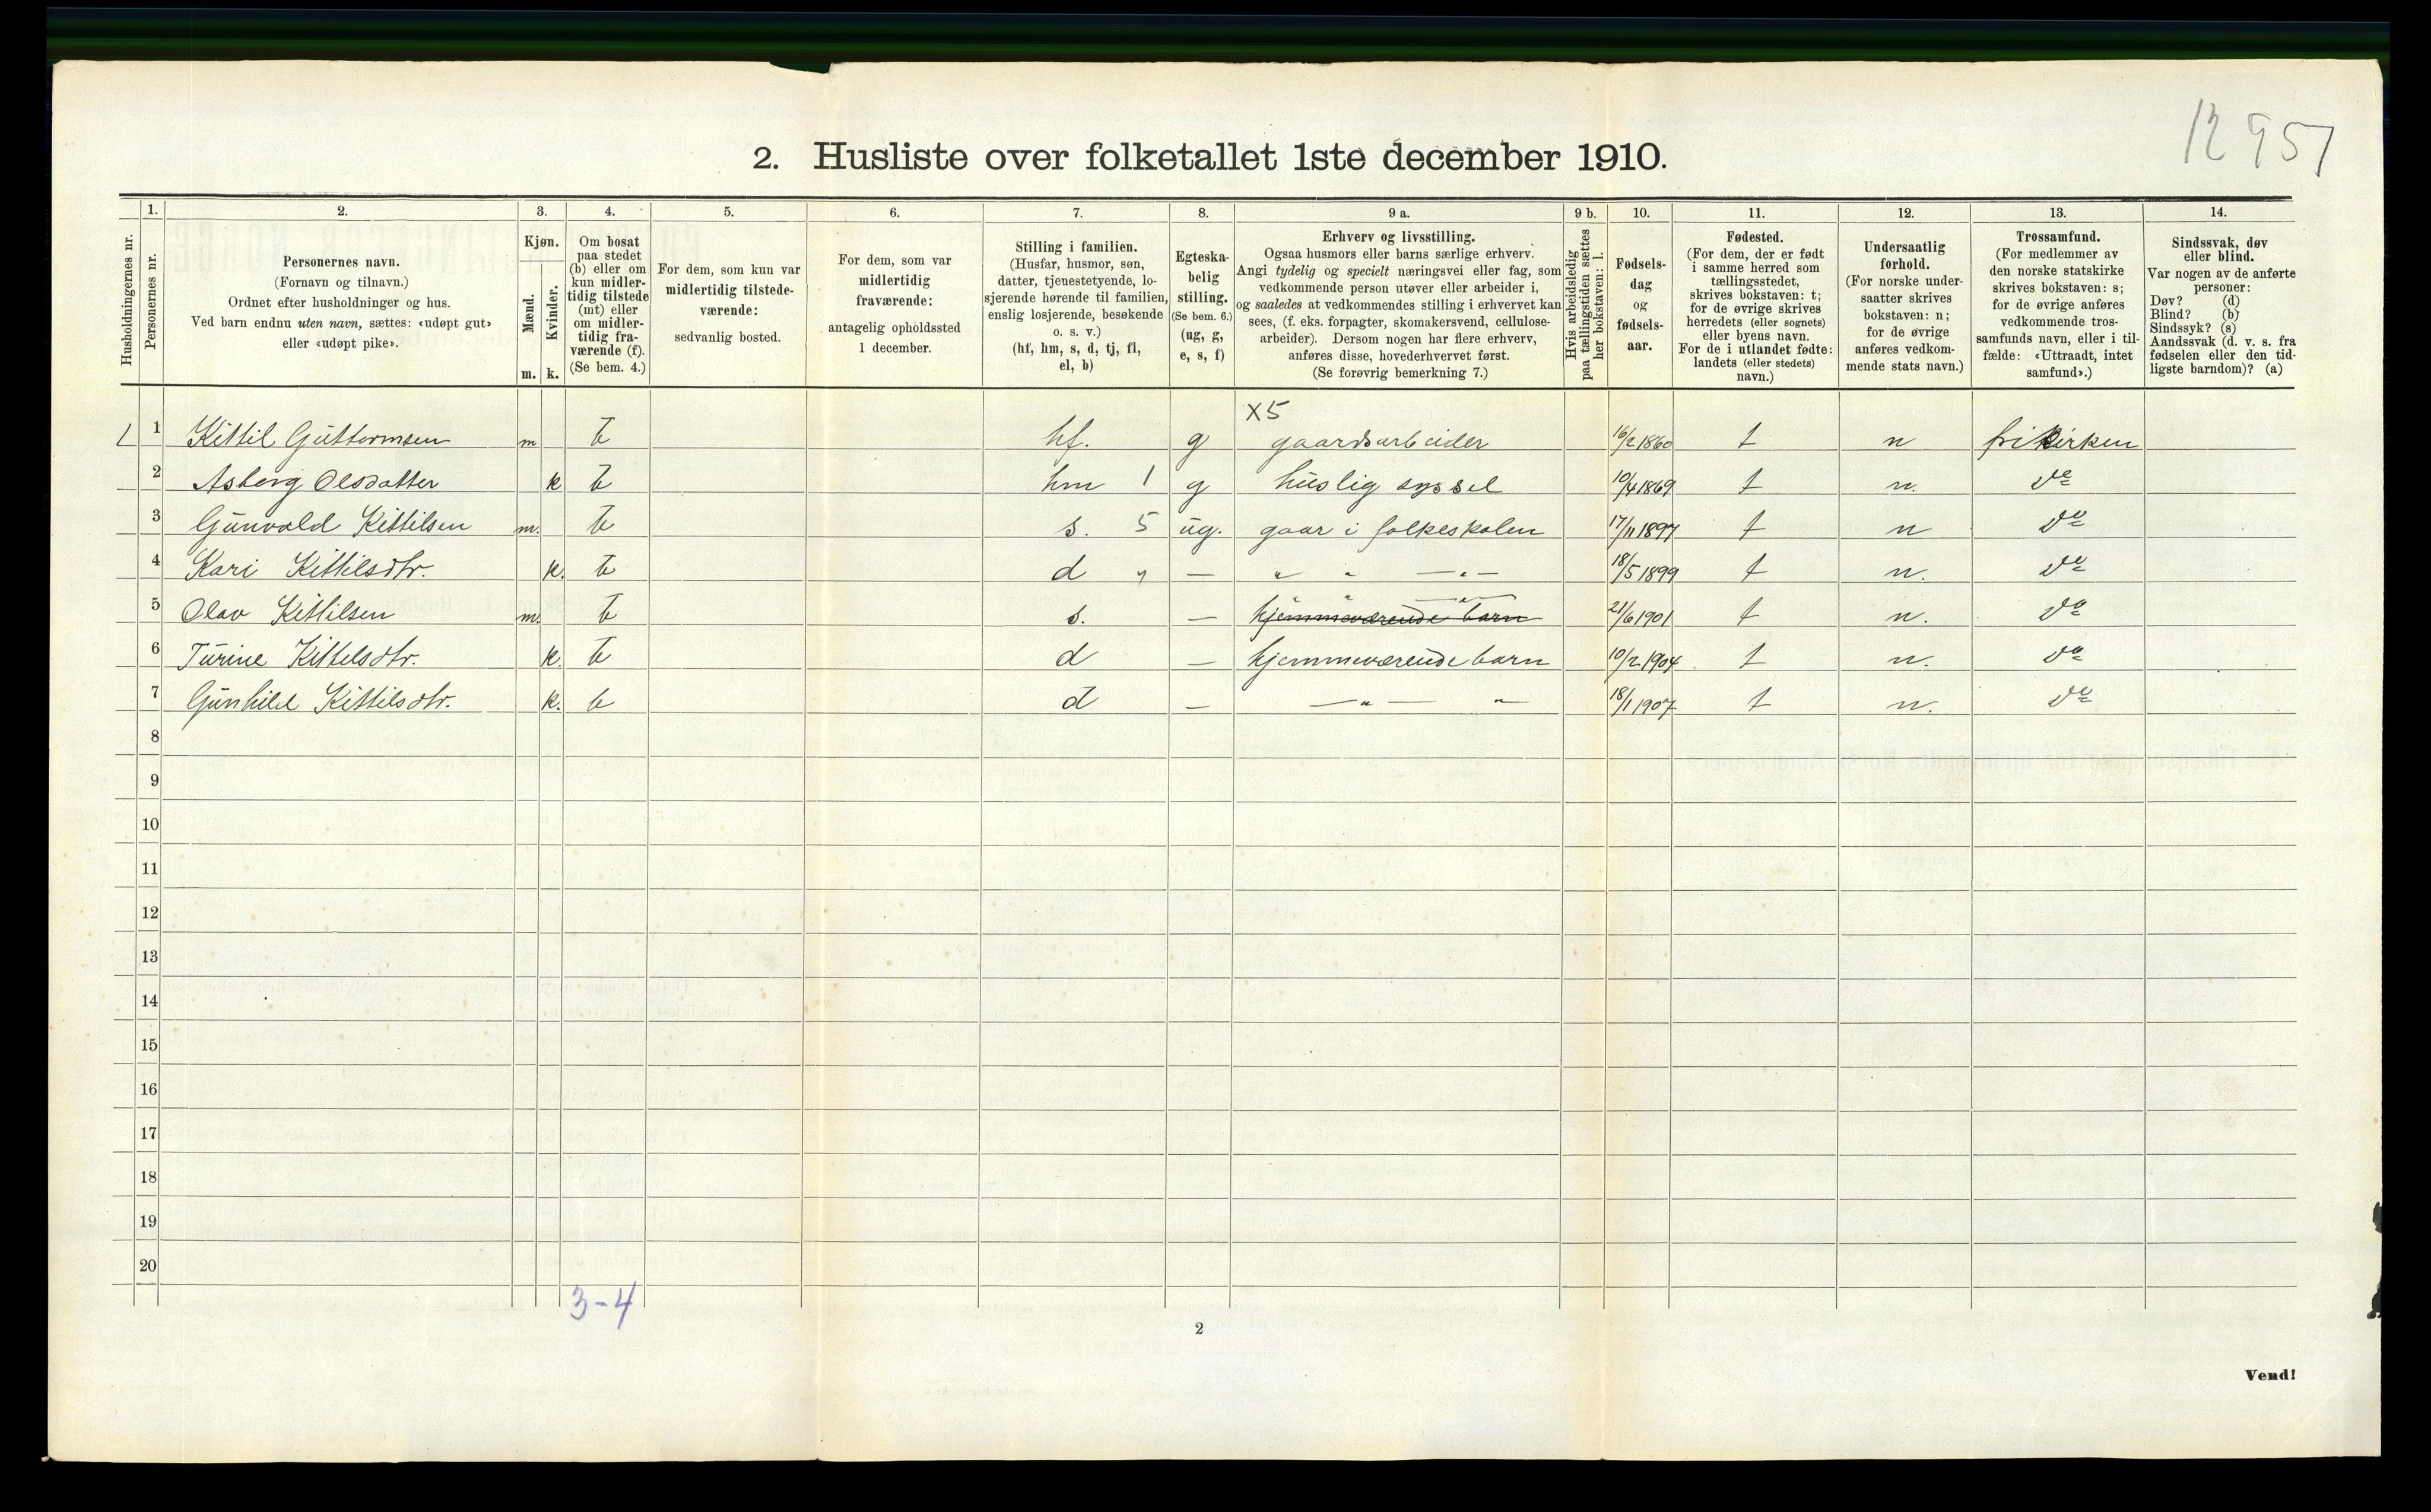 12957
2. Husliste over folketallet 1ste december 1910.
Husholdningernes nr.
1. Personernes nr.
2. Personernes navn.
(Fornavn og tilnavn.)
Ordnet efter husholdninger og hus.
Ved barn endnu uten navn, sættes: «udøpt gut»
eller «udøpt pike».
3. Kjøn.
Mænd. m.
Kvinder. k.
4. Om bosat
paa stedet
(b) eller om
kun midler-
tidig tilstede
(mt) eller
om midler-
tidig fra-
værende (f).
(Se bem. 4.)
5. For dem, som kun var
midlertidig tilstede-
værende:
sedvanlig bosted.
6. For dem, som var
midlertidig
fraværende:
antagelig opholdssted
1 december.
7. Stilling i familien.
(Husfar, husmor, søn,
datter, tjenestetyende, lo-
sjerende hørende til familien,
enslig losjerende, besøkende
o. s. v.)
(hf, hm, s, d, tj, fl,
el, b)
8. Egteska-
belig
stilling.
(Se bem. 6.)
(ug, g,
e, s, f)
9 a. Erhverv og livsstilling.
Ogsaa husmors eller barns særlige erhverv.
Angi tydelig og specielt næringsvei eller fag, som
vedkommende person utøver eller arbeider i,
og saaledes at vedkommendes stilling i erhvervet kan
sees, (f. eks. forpagter, skomakersvend, cellulose-
arbeider). Dersom nogen har flere erhverv,
anføres disse, hovederhvervet først.
(Se forøvrig bemerkning 7.)
9 b. Hvis arbeidsledig
paa tællingstiden sættes
her bokstaven: l.
10. Fødsels-
dag
og
fødsels-
aar.
11. Fødested.
(For dem, der er født
i samme herred som
tællingsstedet,
skrives bokstaven: t;
for de øvrige skrives
herredets (eller sognets)
eller byens navn.
For de i utlandet fødte:
landets (eller stedets)
navn.)
12. Undersaatlig
forhold.
(For norske under-
saatter skrives
bokstaven: n;
for de øvrige
anføres vedkom-
mende stats navn.)
13. Trossamfund.
(For medlemmer av
den norske statskirke
skrives bokstaven: s;
for de øvrige anføres
vedkommende tros-
samfunds navn, eller i til-
fælde: «Uttraadt, intet
samfund».)
14. Sindssvak, døv
eller blind.
Var nogen av de anførte
personer:
Døv? (d)
Blind? (b)
Sindssyk? (s)
Aandssvak (d. v. s. fra
fødselen eller den tid-
ligste barndom)? (a)
x5
1 1 Kittil Guttormsen m b hf. g gaardsarbeider 16/2 1860 t n frikirken
2 Asberg Olsdatter k b hm 1 g huslig syssel 10/4 1869 t n. do
3 Gunvald Kittilsen m. b s. 5 ug. gaar i folkeskolen 17/11 1897 t n do
4 Kari Kittilsdtr. k. b d " — " " —"— 18/5 1899 t n. do
5 Olav Kittilsen m. b s. — " —"— hjemmeværende barn 21/6 1901 t n. do
6 Turine Kittelsdtr. k. b d — hjemmeværende barn 10/2 1904 t n. do
7 Gunhild Kittilsdtr. k. b d — —"— " 18/1 1907 t n. do
8
9
10
11
12
13
14
15
16
17
18
19
20
3-4
2
Vend!